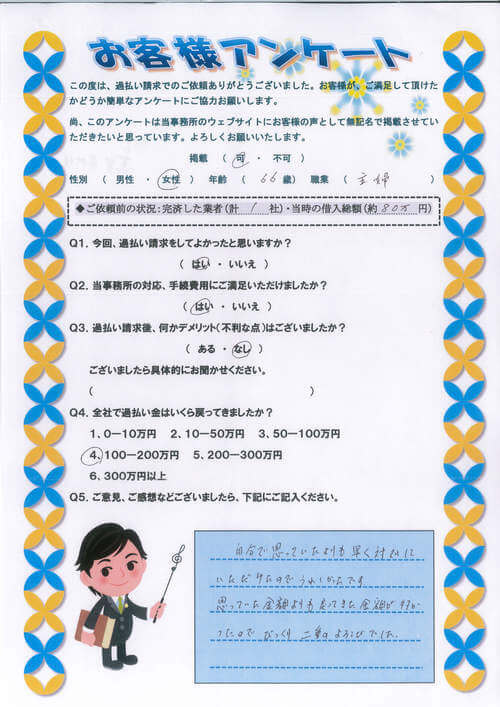 お客様アンケート
この度は、過払い請求でのご依頼ありがとうございました。お客様が、ご満足して頂けた
かどうか簡単なアンケートにご協力お願いします。
尚、このアンケートは当事務所のウェブサイトにお客様の声として無記名で掲載させてい
ただきたいと思っています。よろしくお願いいたします。
掲載 ( 可 ・ 不可 )
性別 ( 男性 ・ 女性 ) 年齢 ( 66 歳) 職業 ( 主婦 )
◆ご依頼前の状況:完済した業者(計 1 社)・当時の借入総額(約 80万 円)
Q1. 今回、過払い請求をしてよかったと思いますか?
( はい ・ いいえ )
Q2. 当事務所の対応、手続費用にご満足いただけましたか?
( はい ・ いいえ )
Q3. 過払い請求後、何かデメリット(不利な点)はございましたか?
( ある ・ なし )
ございましたら具体的にお聞かせください。
( )
Q4. 全社で過払い金はいくら戻ってきましたか?
1、0-10万円 2、10-50万円 3、50-100万円
4、100-200万円 5、200-300万円
6、300万円以上
Q5. ご意見、ご感想などございましたら、下記にご記入ください。
自分で思っていたよりも早く対応に
いただけたのでうれしかったです
思っていた金額よりも戻ってきた金額が多か
ったので びっくり 二重のよろこびでした。